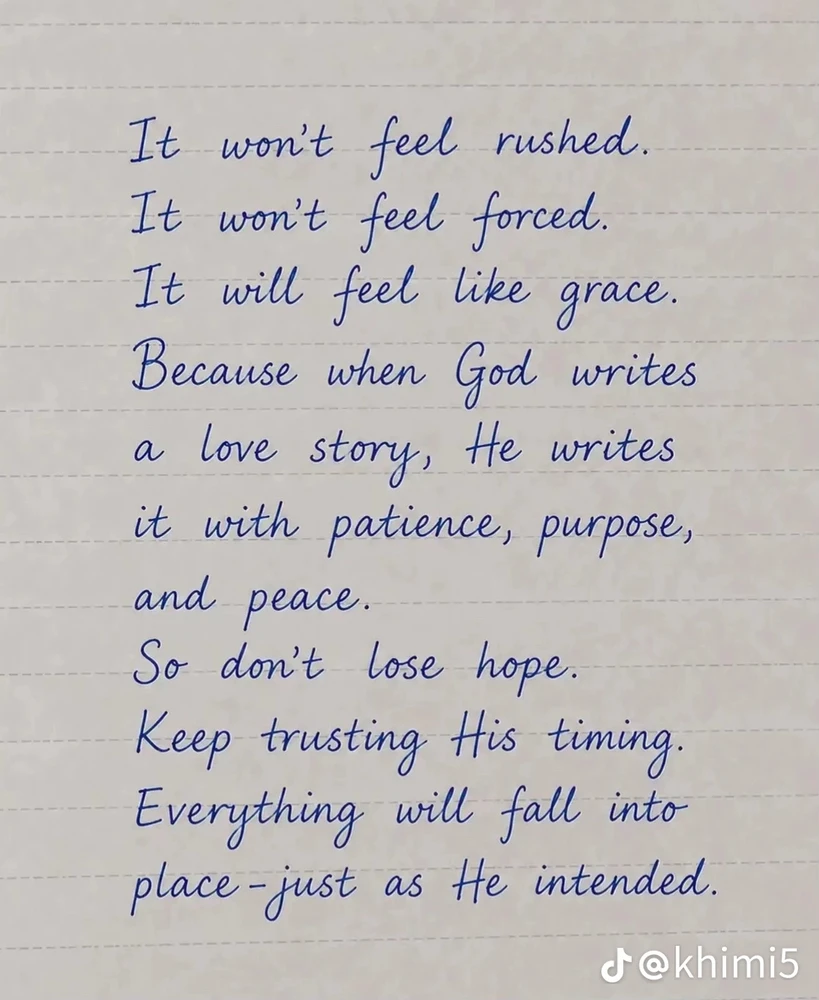 It won't feel rushed.
It won't feel forced.
It will feel like grace.
Because when God writes
a love story, He writes
it with patience, purpose,
and peace.
So don't lose hope.
Keep trusting His timing.
Everything will fall into
place-just as He intended.
@khimi5